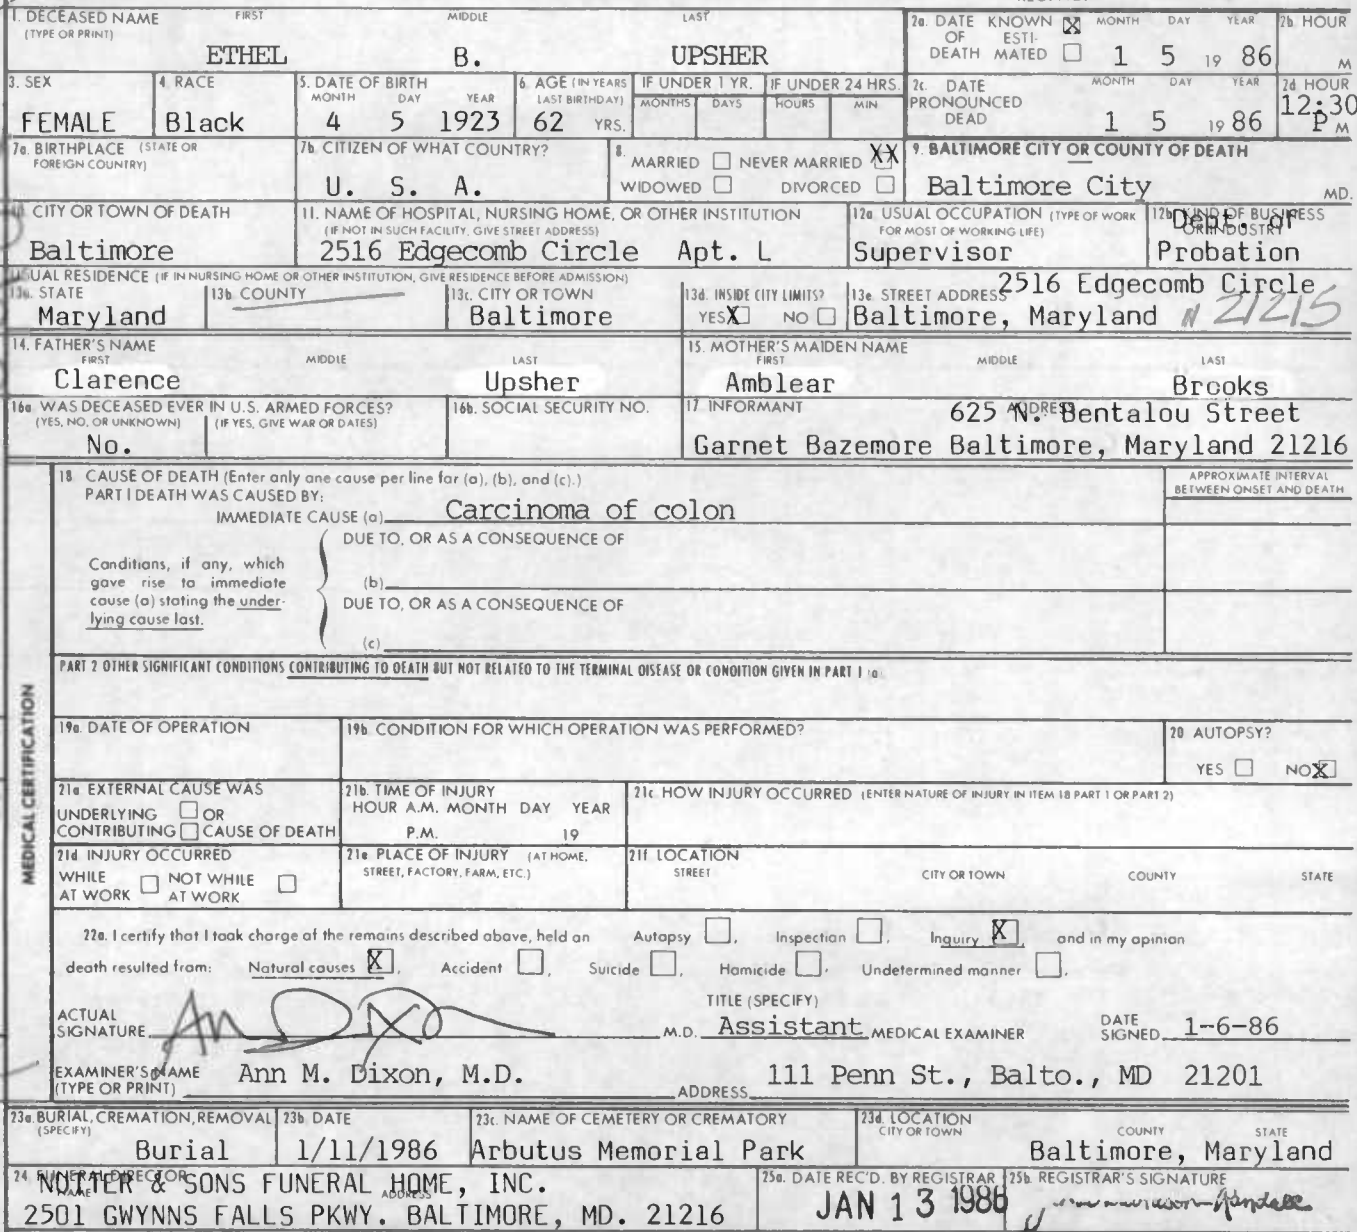 1. DECEASED NAME (TYPE OR PRINT) FIRST MIDDLE LAST
ETHEL B. UPSHER
2a. DATE OF DEATH KNOWN X ESTIMATED MONTH DAY YEAR 1 5 19 86
2b. HOUR M
3. SEX FEMALE
4. RACE Black
5. DATE OF BIRTH MONTH DAY YEAR 4 5 1923
6. AGE (IN YEARS LAST BIRTHDAY) 62 YRS.
IF UNDER 1 YR. MONTHS DAYS
IF UNDER 24 HRS. HOURS MIN
2c. DATE PRONOUNCED DEAD MONTH DAY YEAR 1 5 19 86
2d HOUR 12:30 P M
7a. BIRTHPLACE (STATE OR FOREIGN COUNTRY)
7b. CITIZEN OF WHAT COUNTRY? U. S. A.
8. MARRIED NEVER MARRIED XX
WIDOWED DIVORCED
9. BALTIMORE CITY OR COUNTY OF DEATH
Baltimore City MD.
CITY OR TOWN OF DEATH Baltimore
11. NAME OF HOSPITAL, NURSING HOME, OR OTHER INSTITUTION
(IF NOT IN SUCH FACILITY, GIVE STREET ADDRESS)
2516 Edgecomb Circle Apt. L
12a USUAL OCCUPATION (TYPE OF WORK FOR MOST OF WORKING LIFE) Supervisor
12b KIND OF BUSINESS OR INDUSTRY Dept. of Probation
USUAL RESIDENCE (IF IN NURSING HOME OR OTHER INSTITUTION, GIVE RESIDENCE BEFORE ADMISSION)
13a. STATE Maryland
13b COUNTY
13c. CITY OR TOWN Baltimore
13d. INSIDE CITY LIMITS? YES X NO
13e STREET ADDRESS 2516 Edgecomb Circle
Baltimore, Maryland 21215
14. FATHER'S NAME FIRST MIDDLE LAST
Clarence Upsher
15. MOTHER'S MAIDEN NAME FIRST MIDDLE LAST
Amblear Brooks
16a WAS DECEASED EVER IN U.S. ARMED FORCES?
(YES, NO, OR UNKNOWN) (IF YES, GIVE WAR OR DATES)
No.
16b. SOCIAL SECURITY NO.
17 INFORMANT ADDRESS 625 N. Bentalou Street
Garnet Bazemore Baltimore, Maryland 21216
18 CAUSE OF DEATH (Enter only one cause per line for (a), (b), and (c).)
PART I DEATH WAS CAUSED BY:
IMMEDIATE CAUSE (a) Carcinoma of colon
APPROXIMATE INTERVAL BETWEEN ONSET AND DEATH
DUE TO, OR AS A CONSEQUENCE OF
Conditions, if any, which
gave rise to immediate
cause (a) stating the under-
lying cause last.
(b)
DUE TO, OR AS A CONSEQUENCE OF
(c)
PART 2 OTHER SIGNIFICANT CONDITIONS CONTRIBUTING TO DEATH BUT NOT RELATED TO THE TERMINAL DISEASE OR CONDITION GIVEN IN PART 1 (a)
MEDICAL CERTIFICATION
19a. DATE OF OPERATION
19b. CONDITION FOR WHICH OPERATION WAS PERFORMED?
20 AUTOPSY?
YES NO X
21a EXTERNAL CAUSE WAS
UNDERLYING OR
CONTRIBUTING CAUSE OF DEATH
21b. TIME OF INJURY
HOUR A.M. MONTH DAY YEAR
P.M. 19
21c HOW INJURY OCCURRED (ENTER NATURE OF INJURY IN ITEM 18 PART 1 OR PART 2)
21d INJURY OCCURRED
WHILE AT WORK NOT WHILE AT WORK
21e PLACE OF INJURY (AT HOME, STREET, FACTORY, FARM, ETC.)
21f LOCATION
STREET CITY OR TOWN COUNTY STATE
22a. I certify that I took charge of the remains described above, held an Autopsy, Inspection, Inquiry X, and in my opinion
death resulted from: Natural causes X, Accident, Suicide, Homicide, Undetermined manner.
ACTUAL SIGNATURE Ann Dixon M.D.
TITLE (SPECIFY) Assistant MEDICAL EXAMINER
DATE SIGNED 1-6-86
EXAMINER'S NAME (TYPE OR PRINT) Ann M. Dixon, M.D.
ADDRESS 111 Penn St., Balto., MD 21201
23a. BURIAL, CREMATION, REMOVAL (SPECIFY) Burial
23b. DATE 1/11/1986
23c. NAME OF CEMETERY OR CREMATORY Arbutus Memorial Park
23d. LOCATION CITY OR TOWN COUNTY STATE
Baltimore, Maryland
24. FUNERAL DIRECTOR NAME ADDRESS
NUTTER & SONS FUNERAL HOME, INC.
2501 GWYNNS FALLS PKWY. BALTIMORE, MD. 21216
25a. DATE REC'D. BY REGISTRAR JAN 13 1986
25b. REGISTRAR'S SIGNATURE